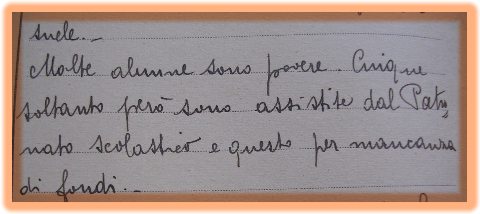 suele. -
Molte alunne sono povere. Cinque
soltanto però sono assistite dal Patro
nato scolastico e questo per mancanza
di fondi. -